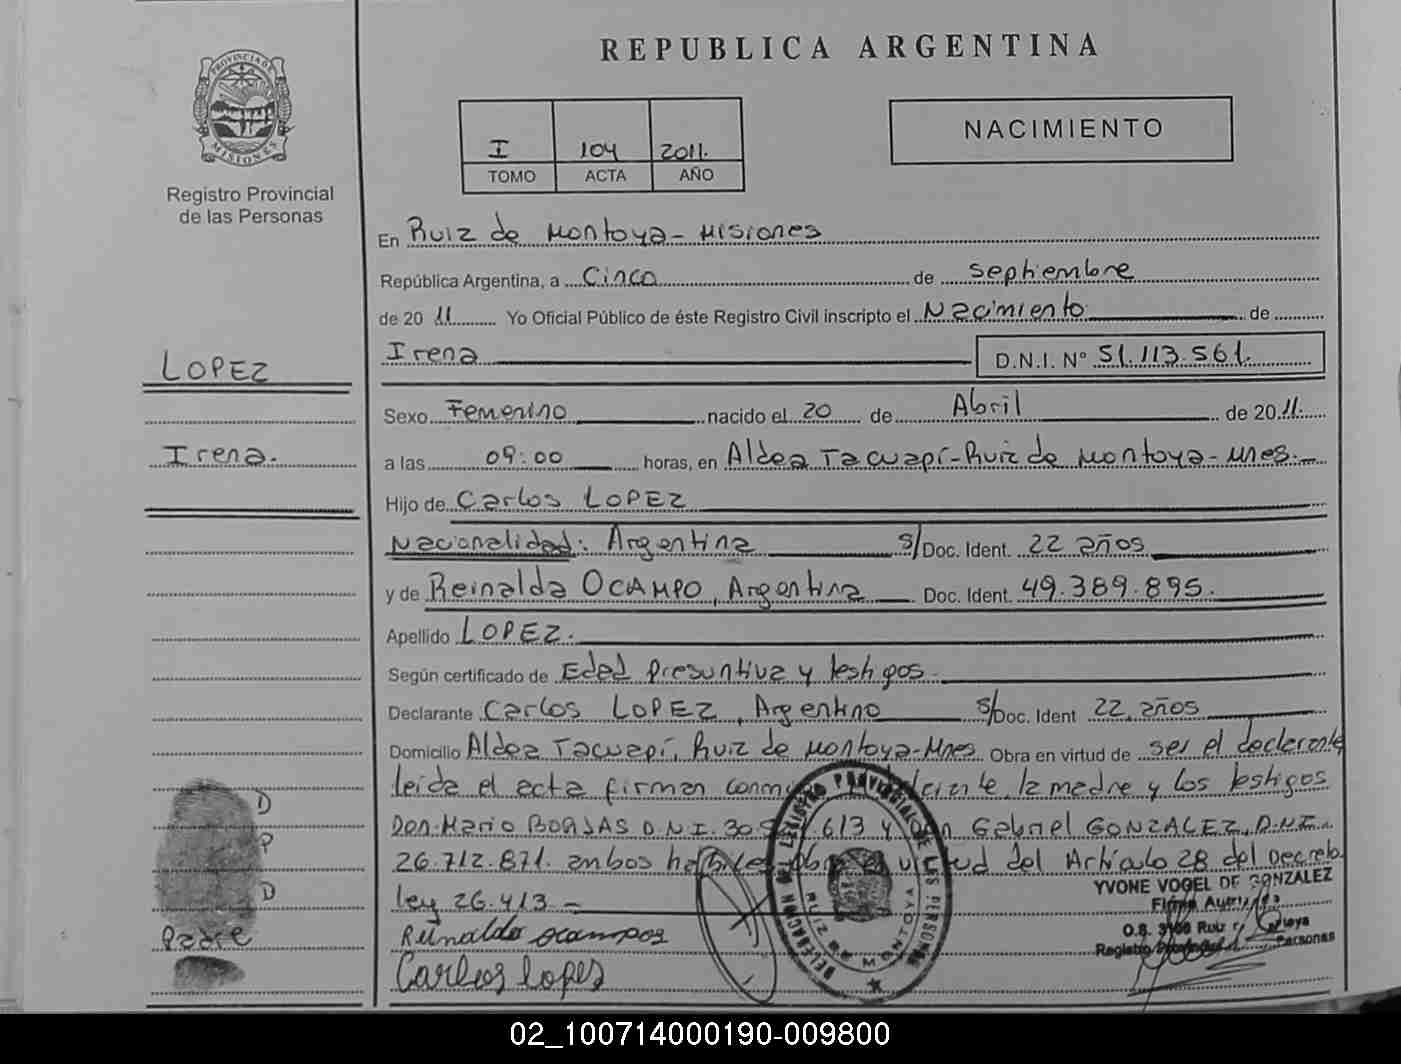 PROVINCIA DE
MISIONES
Registro Provincial
de las Personas
LOPEZ
Irena.
D
P
D
Padre
REPUBLICA ARGENTINA
I 104 2011.
TOMO ACTA AÑO
NACIMIENTO
En Ruiz de Montoya - Misiones
República Argentina, a Cinco de septiembre
de 20 11 Yo Oficial Público de éste Registro Civil inscripto el Nacimiento de
Irena D.N.I. Nº 51.113.561.
Sexo Femenino nacido el 20 de Abril de 2011.
a las 09:00 horas, en Aldea Tacuapí-Ruiz de Montoya-Mnes.
Hijo de Carlos LOPEZ
Nacionalidad: Argentina s/Doc. Ident. 22 años
y de Reinalda OCAMPO, Argentina Doc. Ident. 49.389.895.
Apellido LOPEZ.
Según certificado de Edad Presuntiva y testigos.
Declarante Carlos LOPEZ, Argentino s/Doc. Ident 22 años
Domicilio Aldea Tacuapí, Ruiz de Montoya-Mnes. Obra en virtud de ser el declarante
leída el acta firman la madre y los testigos
Don: Mario BORJAS D.N.I. 30. 613 y Gabriel GONZALEZ, D.N.I.
26.712.871. ambos virtud del Artículo 28 del Decreto
Ley 26.413 -
YVONE VOGEL DE GONZALEZ
O.S. Ruiz
Registro Personas
Reinaldo ocampos
Carlos Lopes
DELEGACION DEL REGISTRO PROVINCIAL DE LAS PERSONAS
RUIZ DE MONTOYA
02_100714000190-009800